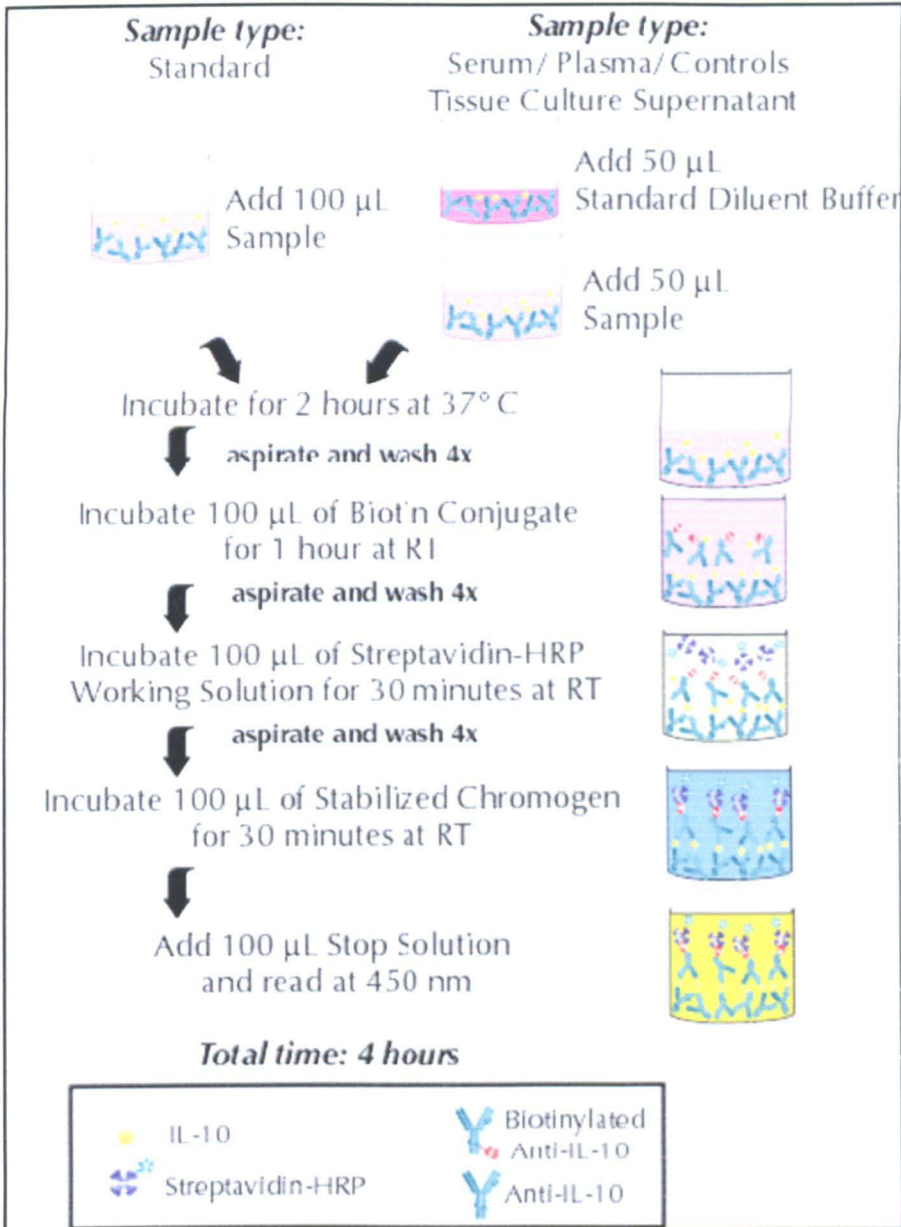 Sample type:
Standard
Sample type:
Serum/ Plasma/ Controls
Tissue Culture Supernatant
Add 100 µL
Sample
Add 50 µL
Standard Diluent Buffer
Add 50 µL
Sample
Incubate for 2 hours at 37° C
aspirate and wash 4x
Incubate 100 µL of Biot'n Conjugate
for 1 hour at RT
aspirate and wash 4x
Incubate 100 µL of Streptavidin-HRP
Working Solution for 30 minutes at RT
aspirate and wash 4x
Incubate 100 µL of Stabilized Chromogen
for 30 minutes at RT
Add 100 µL Stop Solution
and read at 450 nm
Total time: 4 hours
IL-10
Streptavidin-HRP
Biotinylated
Anti-IL-10
Anti-IL-10